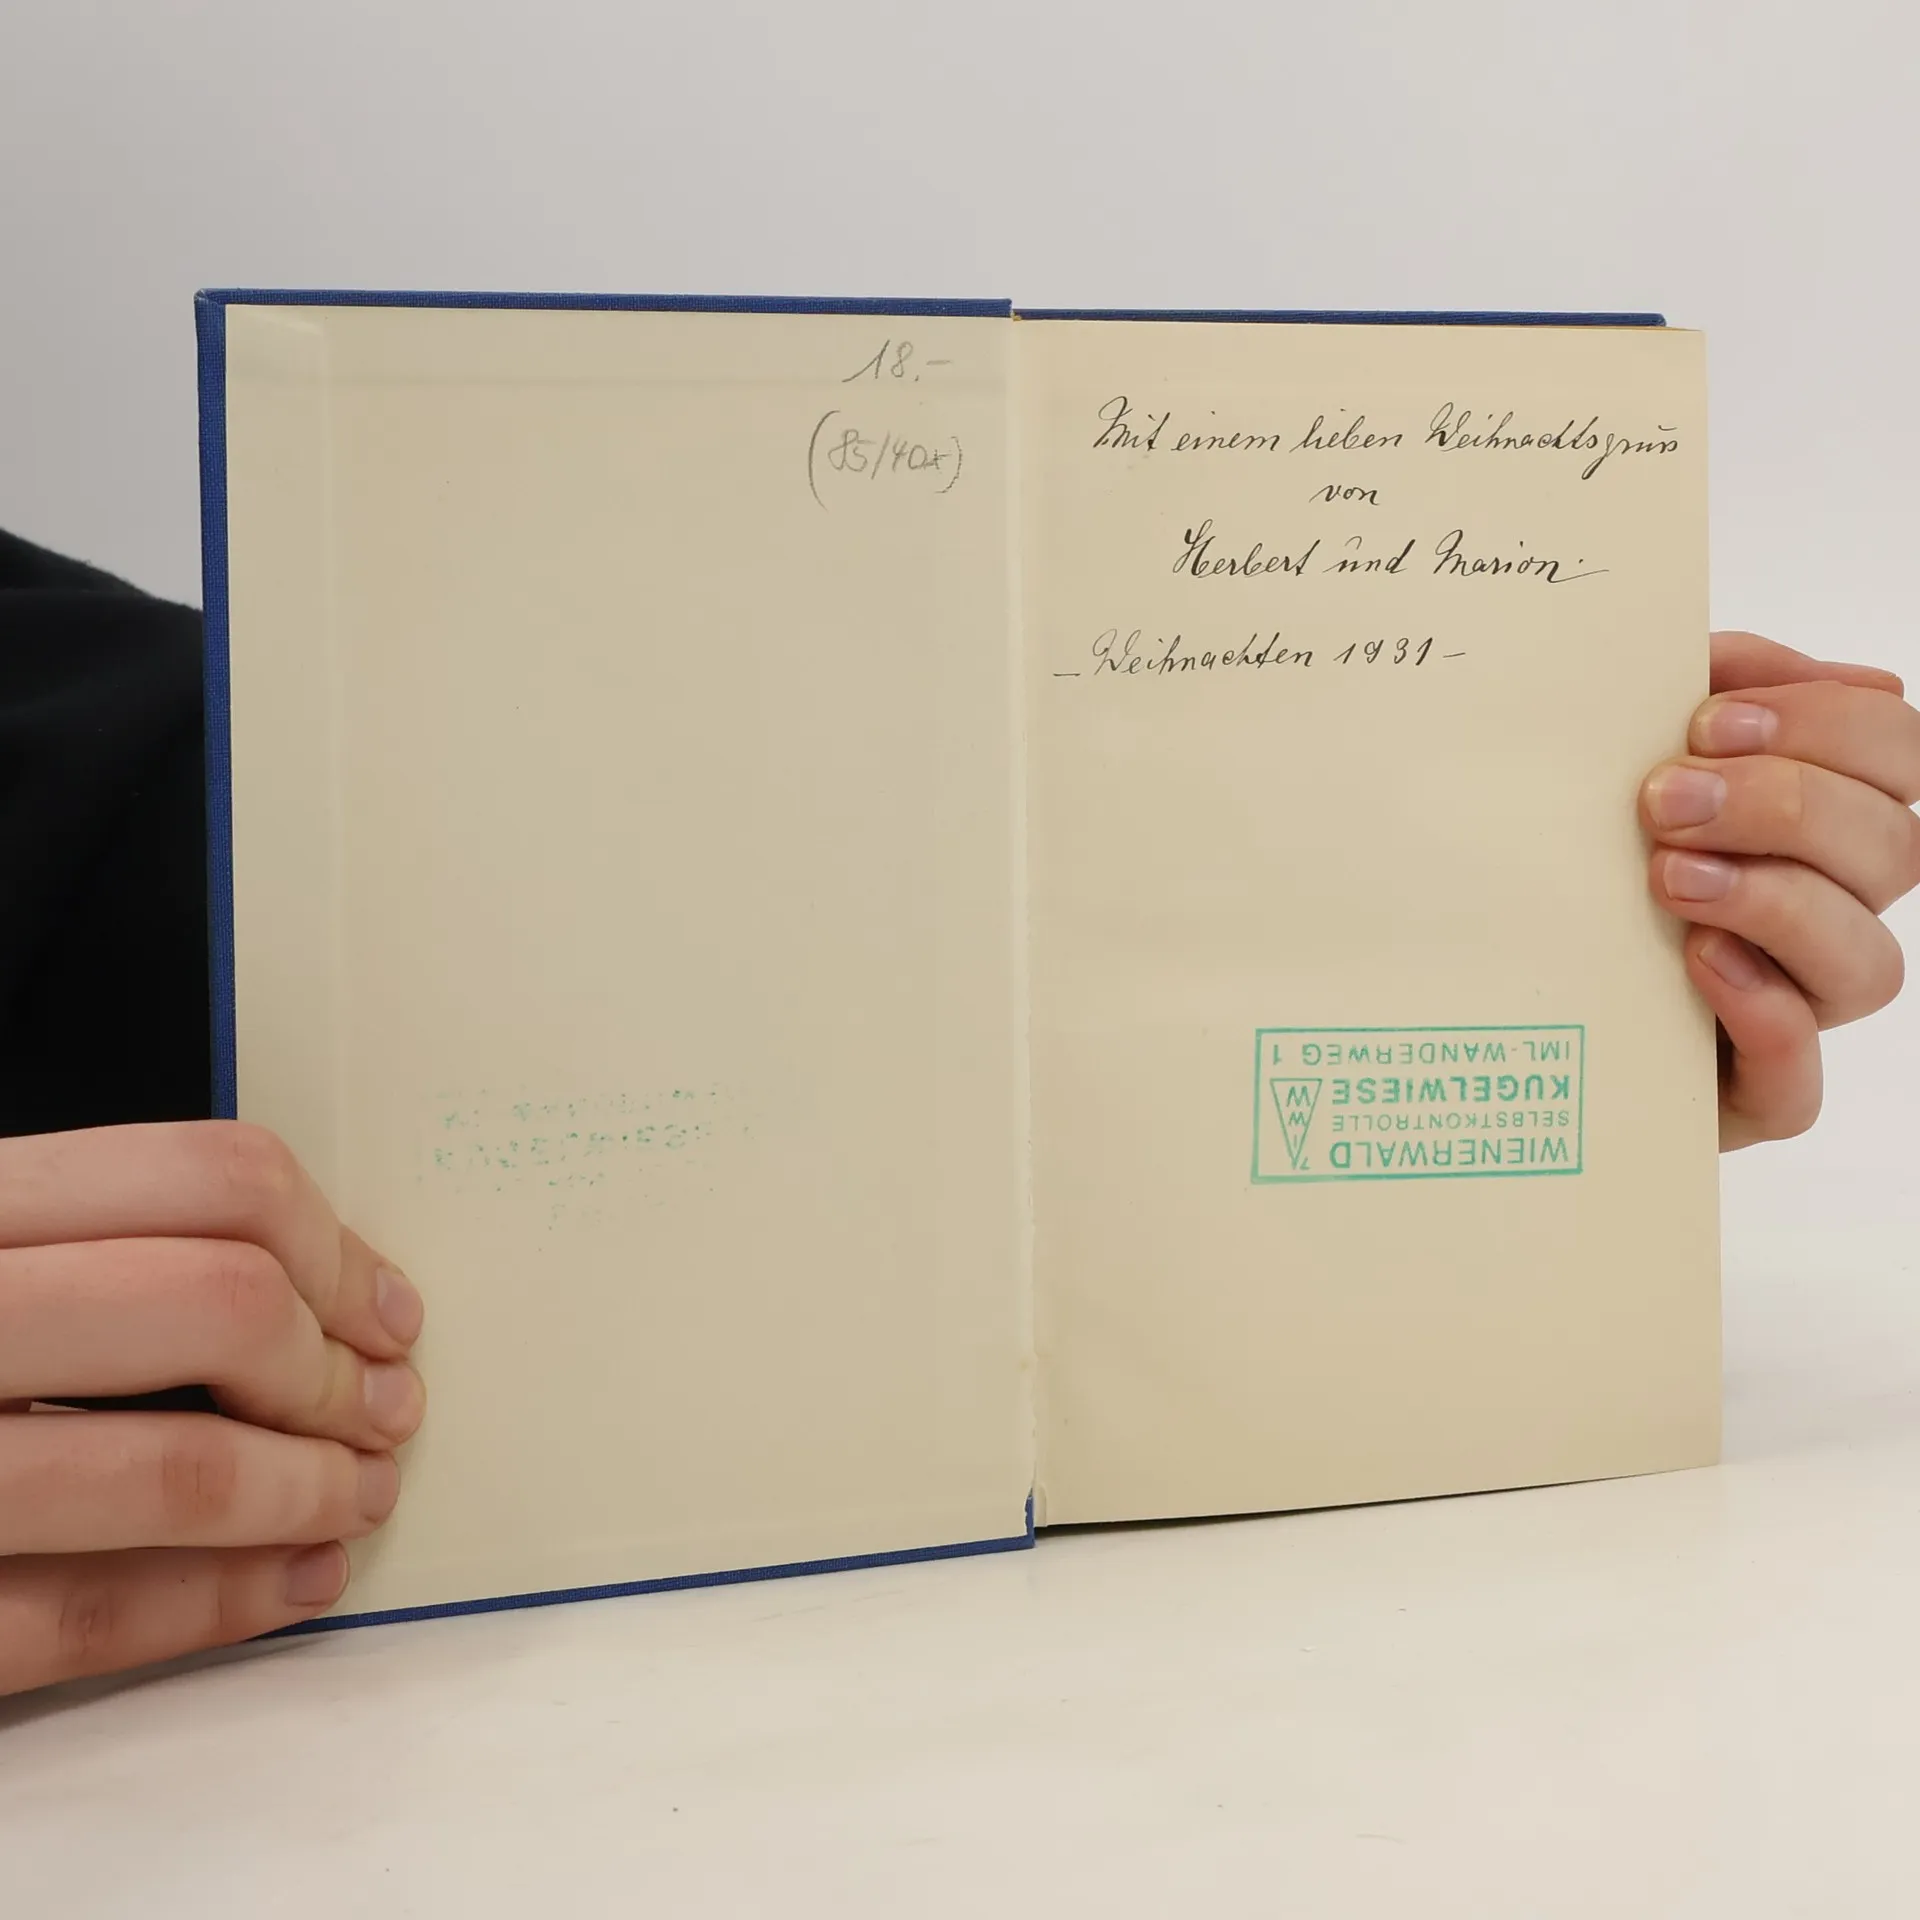 18.-
(85/40x)
Mit einem lieben Weihnachtsgruss
von
Herbert und Marion.
- Weihnachten 1931 -
WIENERWALD 7/
SELBSTKONTROLLE
KUGELWIESE
IML-WANDERWEG 1
I W W